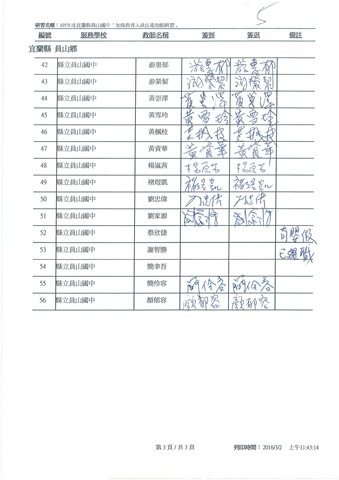 5
研習名稱：105年度宜蘭縣員山國中「加強教育人員反毒知能研習」
編號 服務學校 教師名稱 簽到 簽退 備註
宜蘭縣 員山鄉
42 縣立員山國中 游惠郁 游惠郁 游惠郁
43 縣立員山國中 游榮絜
44 縣立員山國中 黃崇澤 黃崇澤 黃崇澤
45 縣立員山國中 黃雪玲 黃雪玲 黃雪玲
46 縣立員山國中 黃楓枝 黃楓枝 黃楓枝
47 縣立員山國中 黃寶華 黃寶華 黃寶華
48 縣立員山國中 楊嵐茜
49 縣立員山國中 褚煜凱 褚煜凱 褚煜凱
50 縣立員山國中 劉忠偉
51 縣立員山國中 劉家溍
52 縣立員山國中 蔡效倢 育嬰假
53 縣立員山國中 謝智勝 已離職
54 縣立員山國中 簡聿吾
55 縣立員山國中 簡伶容 簡伶容 簡伶容
56 縣立員山國中 顏郁容 顏郁容 顏郁容
第 3 頁 / 共 3 頁
列印時間：2016/3/2 上午11:43:14